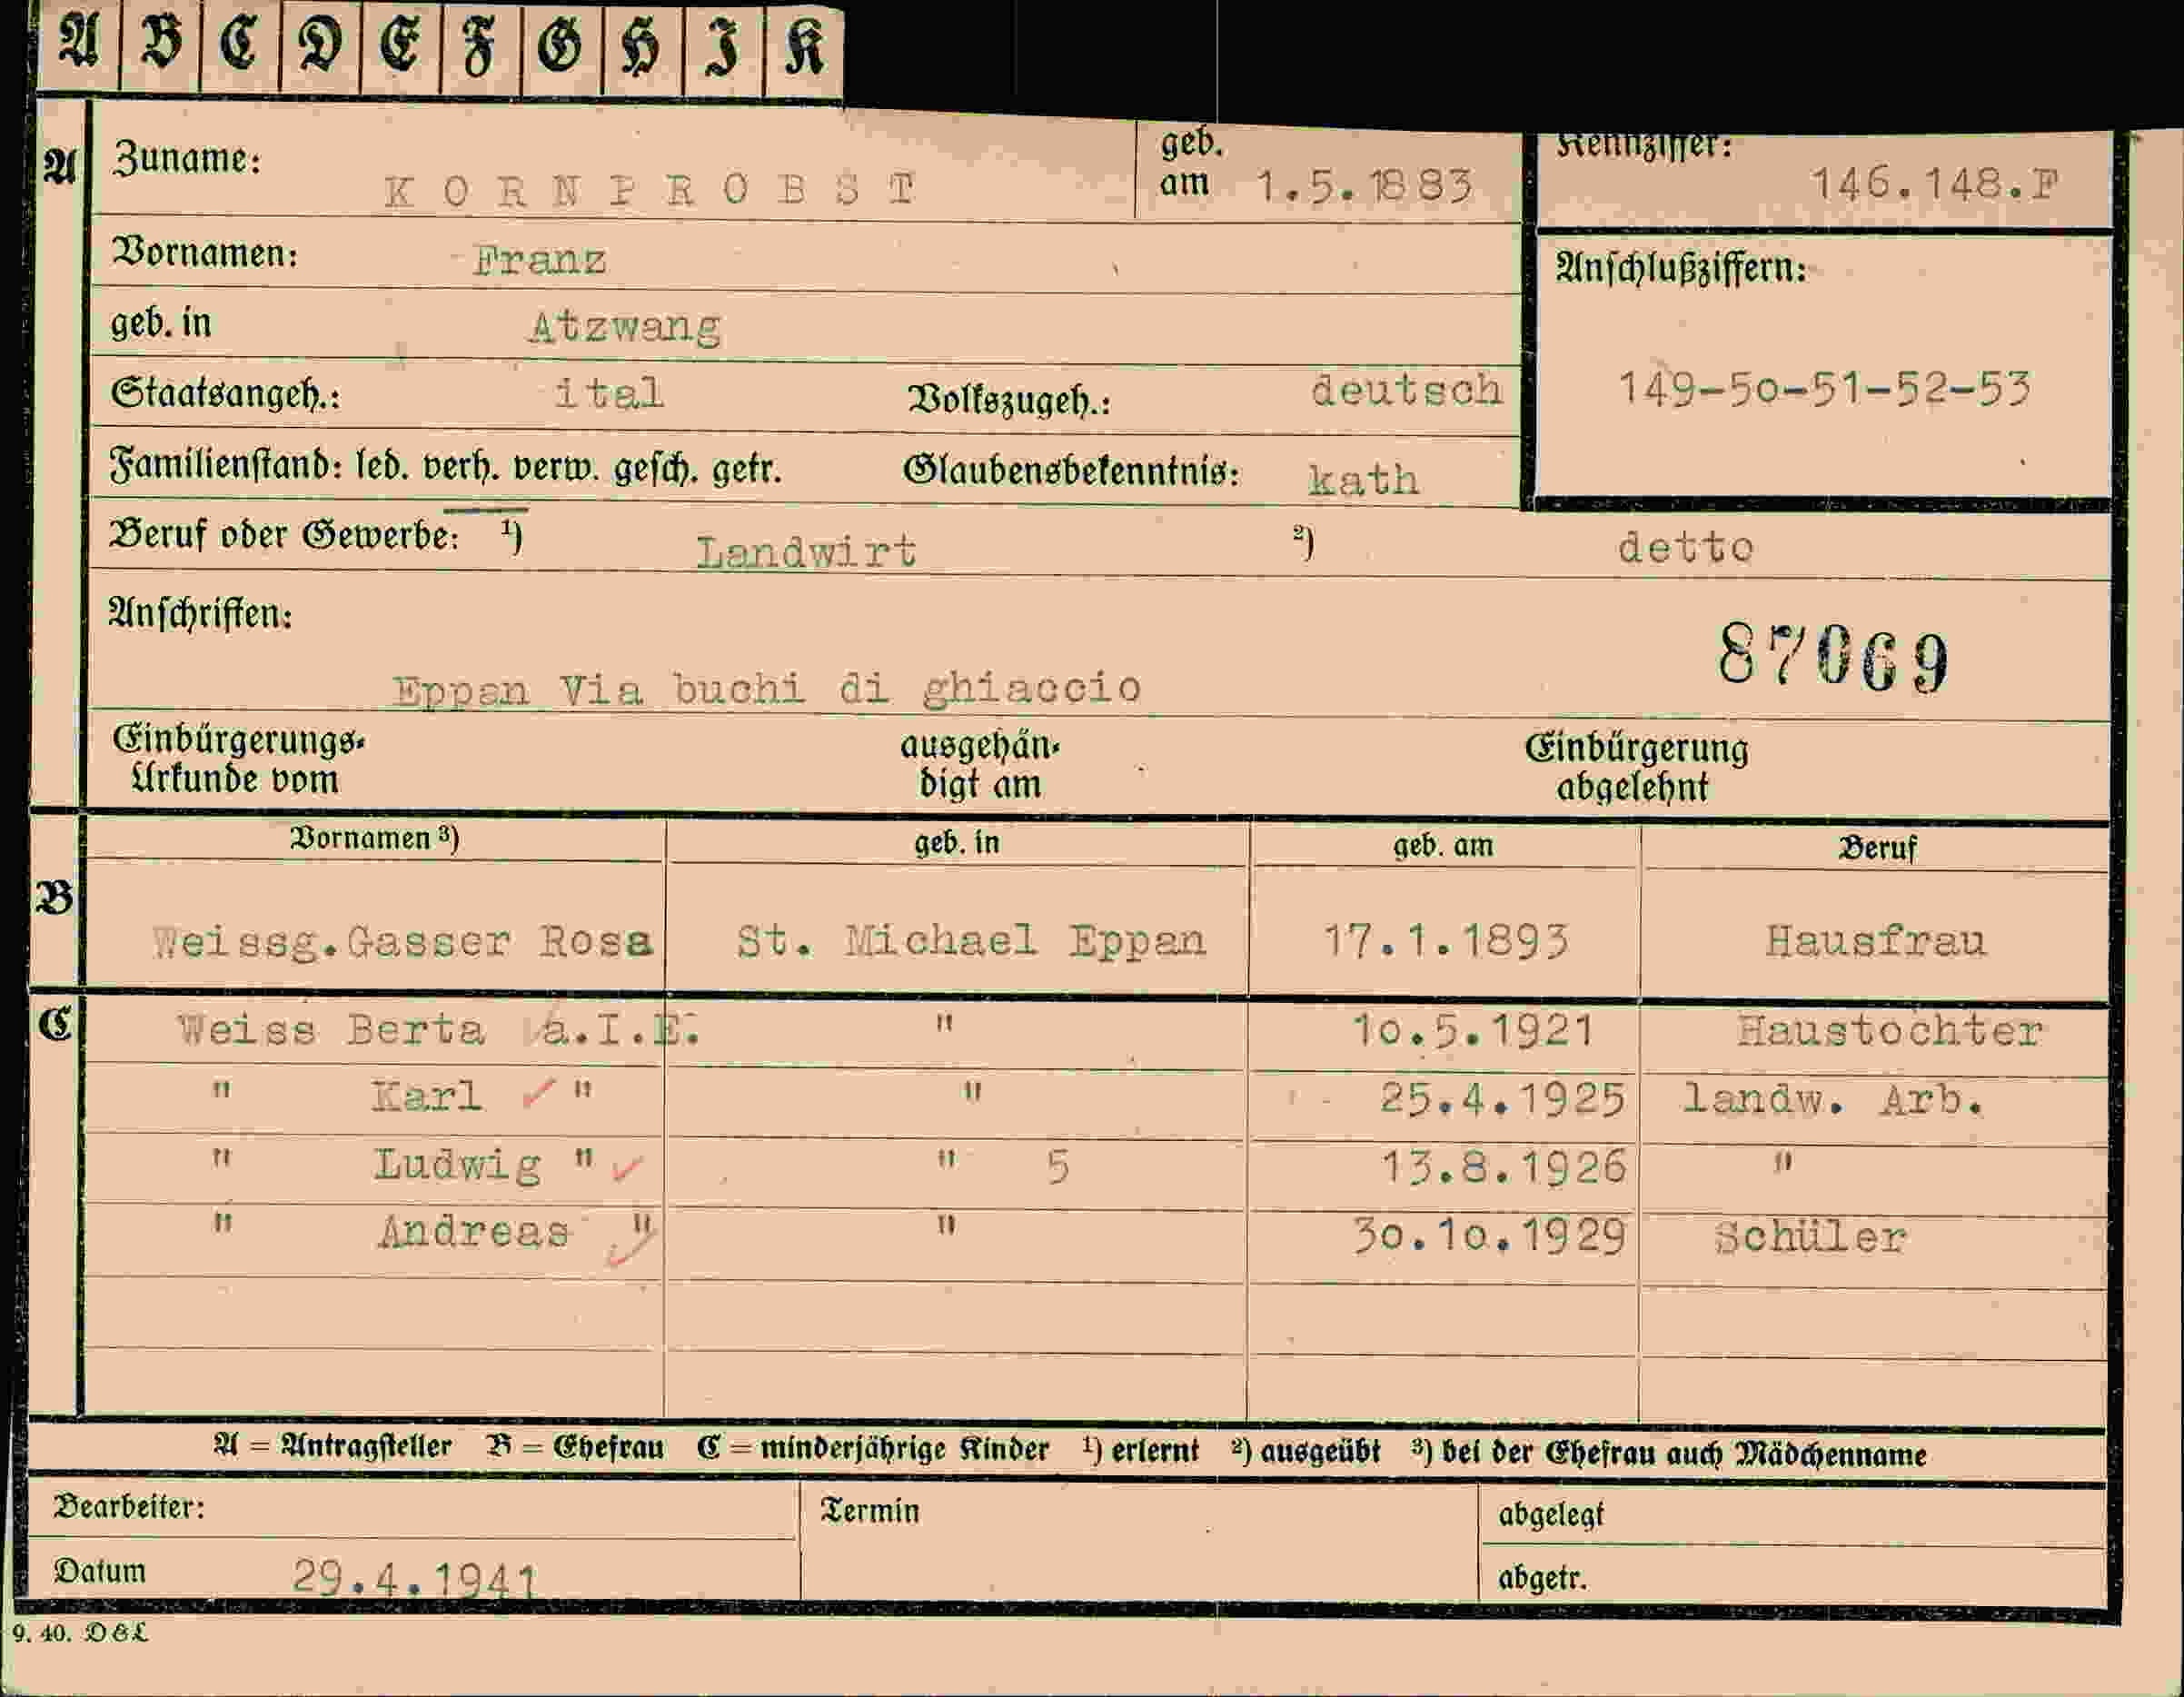 A B C D E F G H I K
A Zuname: KORNPROBST geb. am 1.5.1883 Kennziffer: 146.148.F
Vornamen: Franz
Anschlußziffern:
geb. in Atzwang
Staatsangeh.: ital Volkszugeh.: deutsch 149-5o-51-52-53
Familienstand: led. verh. verw. gesch. getr. Glaubensbekenntnis: kath
Beruf oder Gewerbe: 1) Landwirt 2) detto
Anschriften:
87069
Eppan Via buchi di ghiaccio
Einbürgerungs- ausgehän- Einbürgerung
Urkunde vom digt am abgelehnt
Vornamen 3) geb. in geb. am Beruf
B
Weissg.Gasser Rosa St. Michael Eppan 17.1.1893 Hausfrau
C Weiss Berta a.I.E. " 1o.5.1921 Haustochter
" Karl ✓ " " 25.4.1925 landw. Arb.
" Ludwig " ✓ " 5 13.8.1926 "
" Andreas " ✓ " 3o.1o.1929 Schüler
A = Antragsteller B = Ehefrau C = minderjährige Kinder 1) erlernt 2) ausgeübt 3) bei der Ehefrau auch Mädchenname
Bearbeiter: Termin abgelegt
Datum 29.4.1941 abgetr.
9. 40. D&L